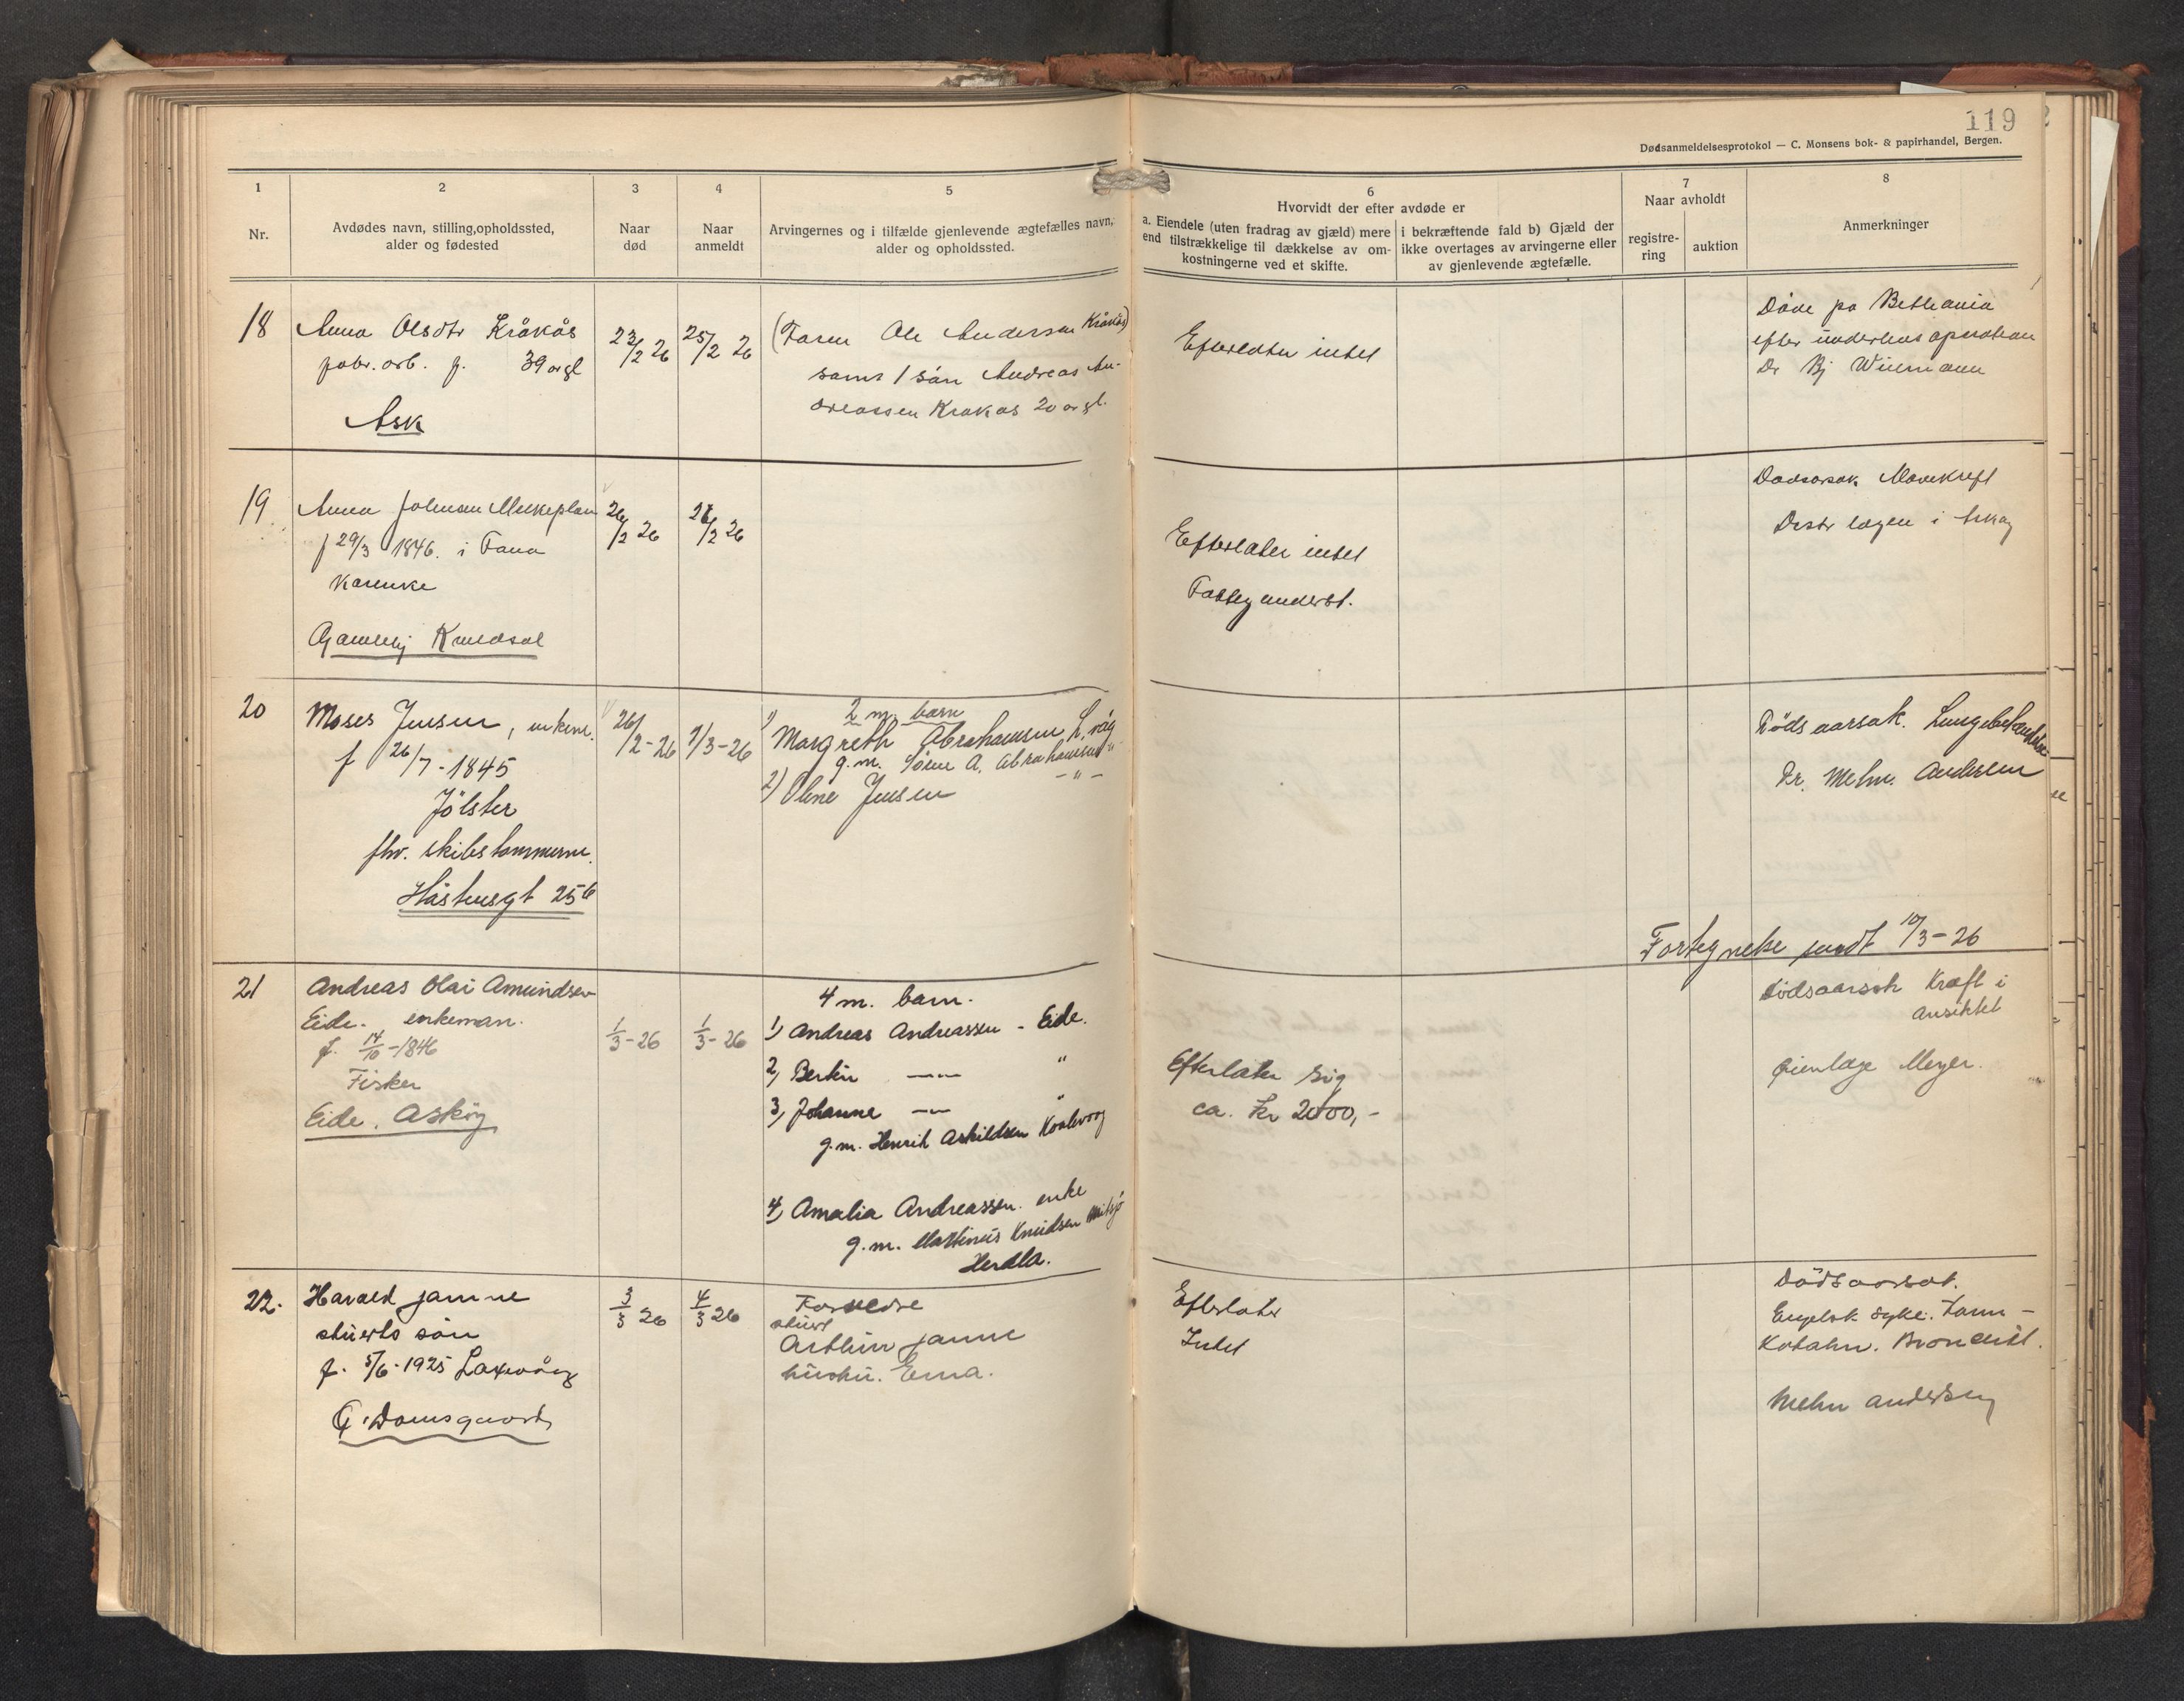 119
Dødsanmeldelsesprotokol — C. Monsens bok- & papirhandel, Bergen.
1
Nr.
2
Avdødes navn, stilling, opholdssted,
alder og fødested
3
Naar
død
4
Naar
anmeldt
5
Arvingernes og i tilfælde gjenlevende ægtefælles navn,
alder og opholdssted.
6
Hvorvidt der efter avdøde er
a. Eiendele (uten fradrag av gjæld) mere
end tilstrækkelige til dækkelse av om-
kostningerne ved et skifte.
i bekræftende fald b) Gjæld der
ikke overtages av arvingerne eller
av gjenlevende ægtefælle.
7
Naar avholdt
registre-
ring
auktion
8
Anmerkninger
18
Anna Olsdtr Kråkås
fabr. arb. f. 39 årgl
Ask
22/2 26
25/2 26
(Faren Ole Andersen Kråkås)
samt 1 sön Andreas An-
dreassen Krakås 20 årgl.
Efterlater intet
Döde på Bethania
efter underlivs operation
Dr Bj
19
Anna Johnsen
f 29/3 1846. i Fana
Gamlehj Knudsal
26/2 26
/2 26
Efterlater intet
Fattigunderst.
Dödsarsak Mavekreft
Distr lægen i Askøy
20
Moses Jensen, enkem.
f 26/7-1845
Jölster
fhv. skibstømmerm.
25b
26/2-26
1/3-26
2 m. barn
1) Margreth Abrahamsen L.våg
g.m. Sören A. Abrahamsen "
2) Oline Jensen -"-
Dödsaarsak. Lungebetændelse
Dr. Mehn. Andersen
Fortegnelse sendt 10/3-26
21
Andreas Olai Amundsen
Eide. enkeman.
f. 14/10-1846
Fisker
Eide. Asköy
1/3-26
1/3-26
4 m. barn.
1) Andreas Andreassen - Eide.
2) Bertin —"— "
3) Johanne —"— "
g.m. Henrik Askildsen
4) Amalia Andreassen. enke
g.m. Martinus Knudsen
Herdla.
Efterlater sig
ca. Kr 2000,-
Dödsaarsak Kræft i
ansiktet
Öienlæge Meyer.
22.
Harald Janne
stuerts sön
f. 5/6-1925 Laxevåg
G. Damsgaard
3/3 26
4/3 26
Forældre
stuert
Arthur Janne
hustru. Erna.
Efterlater
Intet
Dödsaarsak.
Engelsk syke. Tarm-
Katahr. Bronchit.
Mehn Andersen